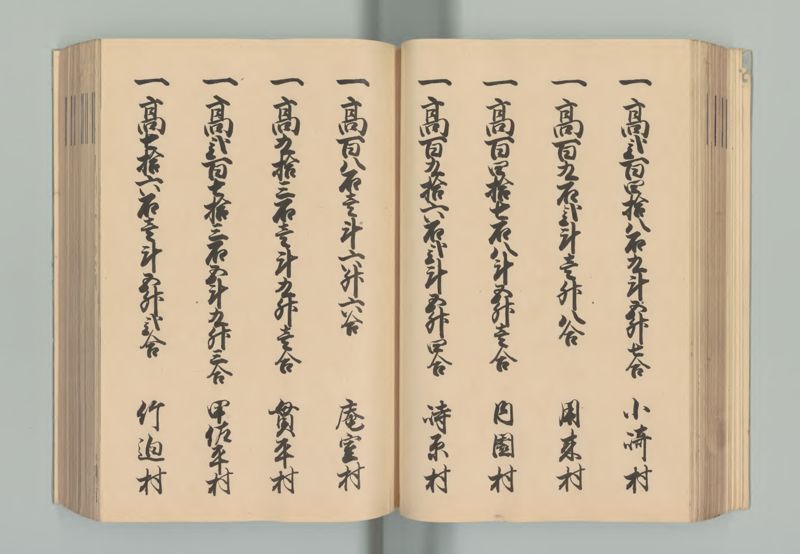 一高弐百四拾八石九斗五升七合 小崎村
一高百九石弐斗壱升八合 用来村
一高百四拾七石八斗五升壱合 内園村
一高百九拾六石弐斗五升四合 崎原村
一高百八石壱斗六升六合 庵室村
一高九拾三石壱斗九升壱合 貫平村
一高弐百七拾三石五斗九升三合 甲佐平村
一高七拾六石壱斗五升弐合 竹迫村